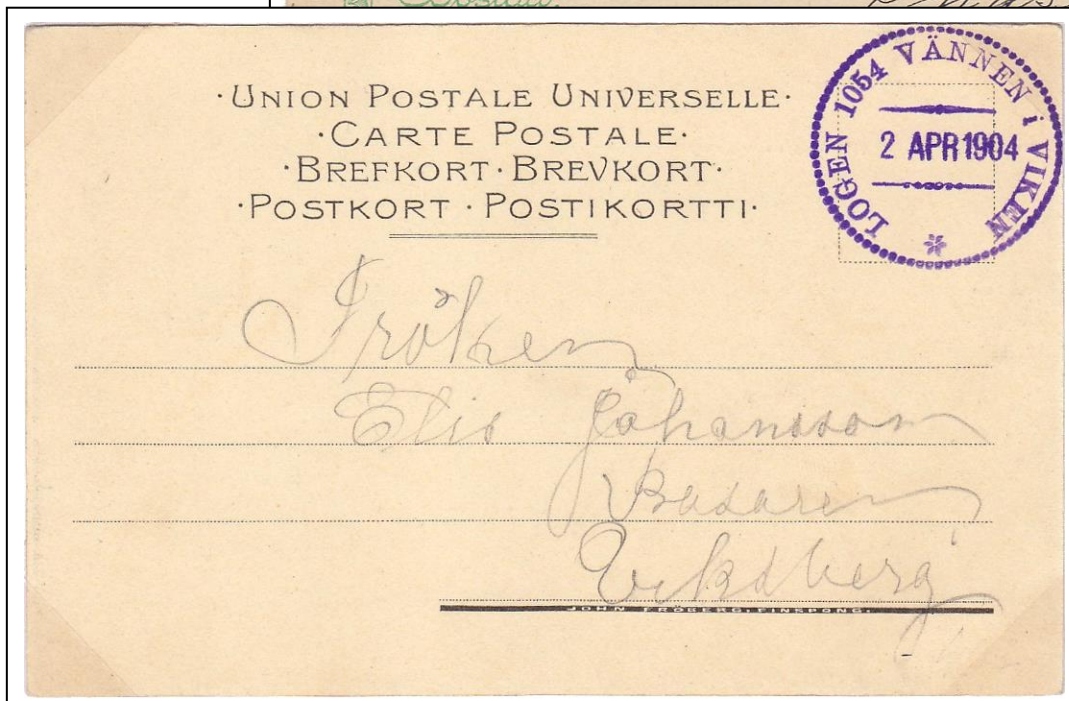 ·UNION POSTALE UNIVERSELLE·
·CARTE POSTALE·
·BREFKORT·BREVKORT·
·POSTKORT·POSTIKORTTI·
LOGEN 1054 VÄNNEN i VIKEN
2 APR 1904
Fröken
Elis Johansson
Basaren
JOHN FRÖBERG, FINSPONG.